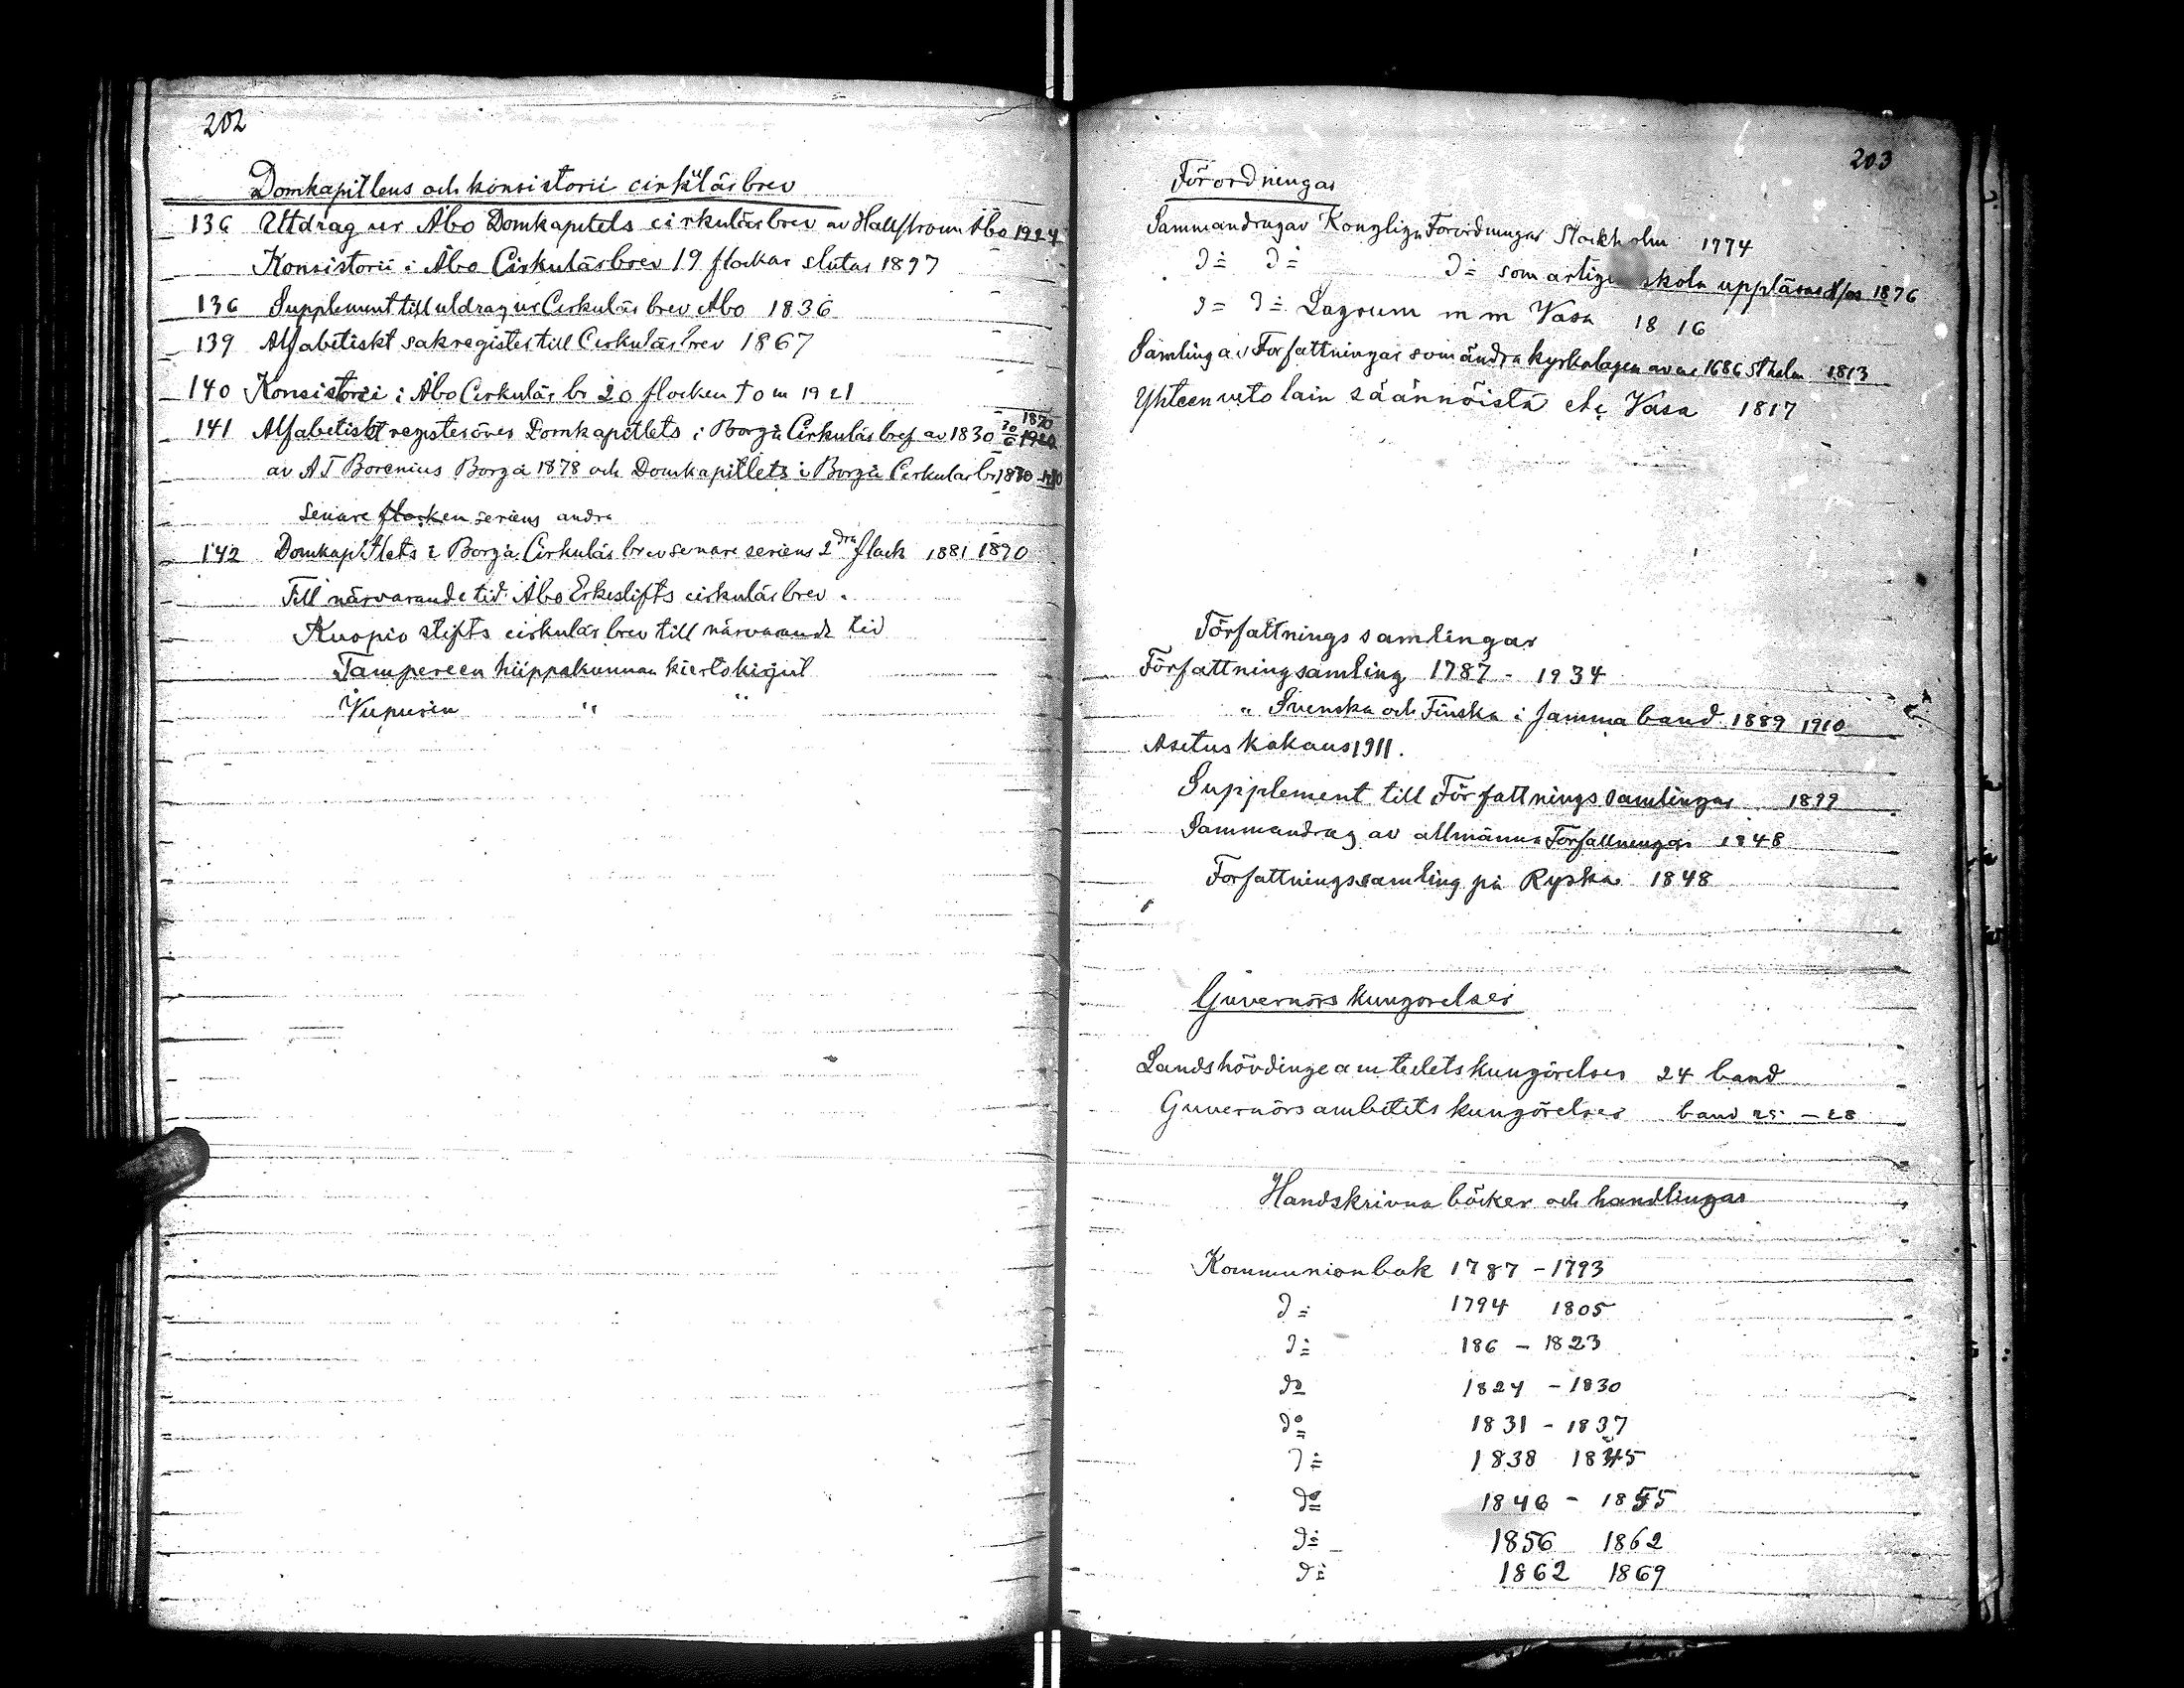 202
Domkapitlens och konsistorii cirkulärbrev
136 Utdrag ur Åbo Domkapitels cirkulärbrev av Hallstrom Åbo 1924
Konsistorii i Åbo Cirkulärbrev 19 flockar slutar 1897
136 Supplement till utdrag ur Cirkulärbrev Åbo 1836
139 Alfabetiskt sakregister till Cirkulärbrev 1867
140 Konsistorii i Åbo Cirkulär br 20 flocken t o m 1921
141 Alfabetiskt register över Domkapitlets i Borgå Cirkulärbref av 1830 1870
av A T Borenius Borgå 1878 och Domkapitlets i Borgå Cirkulär br
senare flocken seriens andra
142 Domkapitlets i Borgå Cirkulärbrev senare seriens 2dra flock 1881 1890
Till närvarande tid. Åbo Erkestifts cirkulärbrev.
Kuopio stifts cirkulärbrev till närvarande tid
Tampereen hiippakunnan kiertokirjat
Viipurin " "
203
Förordningar
Sammandrag av Kongliga Förordningar Stockholm 1774
Do Do Do som årligen skola uppläsas 1876
Do Do Lagrum m m Vasa 1816
Samling av Författningar som ändra kyrkolagen av 1686 Sthelm 1813
Yhteenveto lain säännöistä etc Vasa 1817
Författnings samlingar
Författningsamling 1787 - 1934
" Svenska och Finska i samma band 1889 1910
Asetus kokous 1911.
Supplement till Författnings samlingar 1899
Sammandrag av allmänna Författningar 1848
Författningssamling på Ryska 1848
Guvernörs kungörelser
Landshövdingeämbetets kungörelser 24 band
Guvernörsämbetets kungörelser band 25 - 28
Handskrivna böcker och handlingar
Kommunionbok 1787 - 1793
Do 1794 1805
Do 186 - 1823
Do 1824 - 1830
Do 1831 - 1837
Do 1838 1845
Do 1846 - 1855
Do 1856 1862
Do 1862 1869